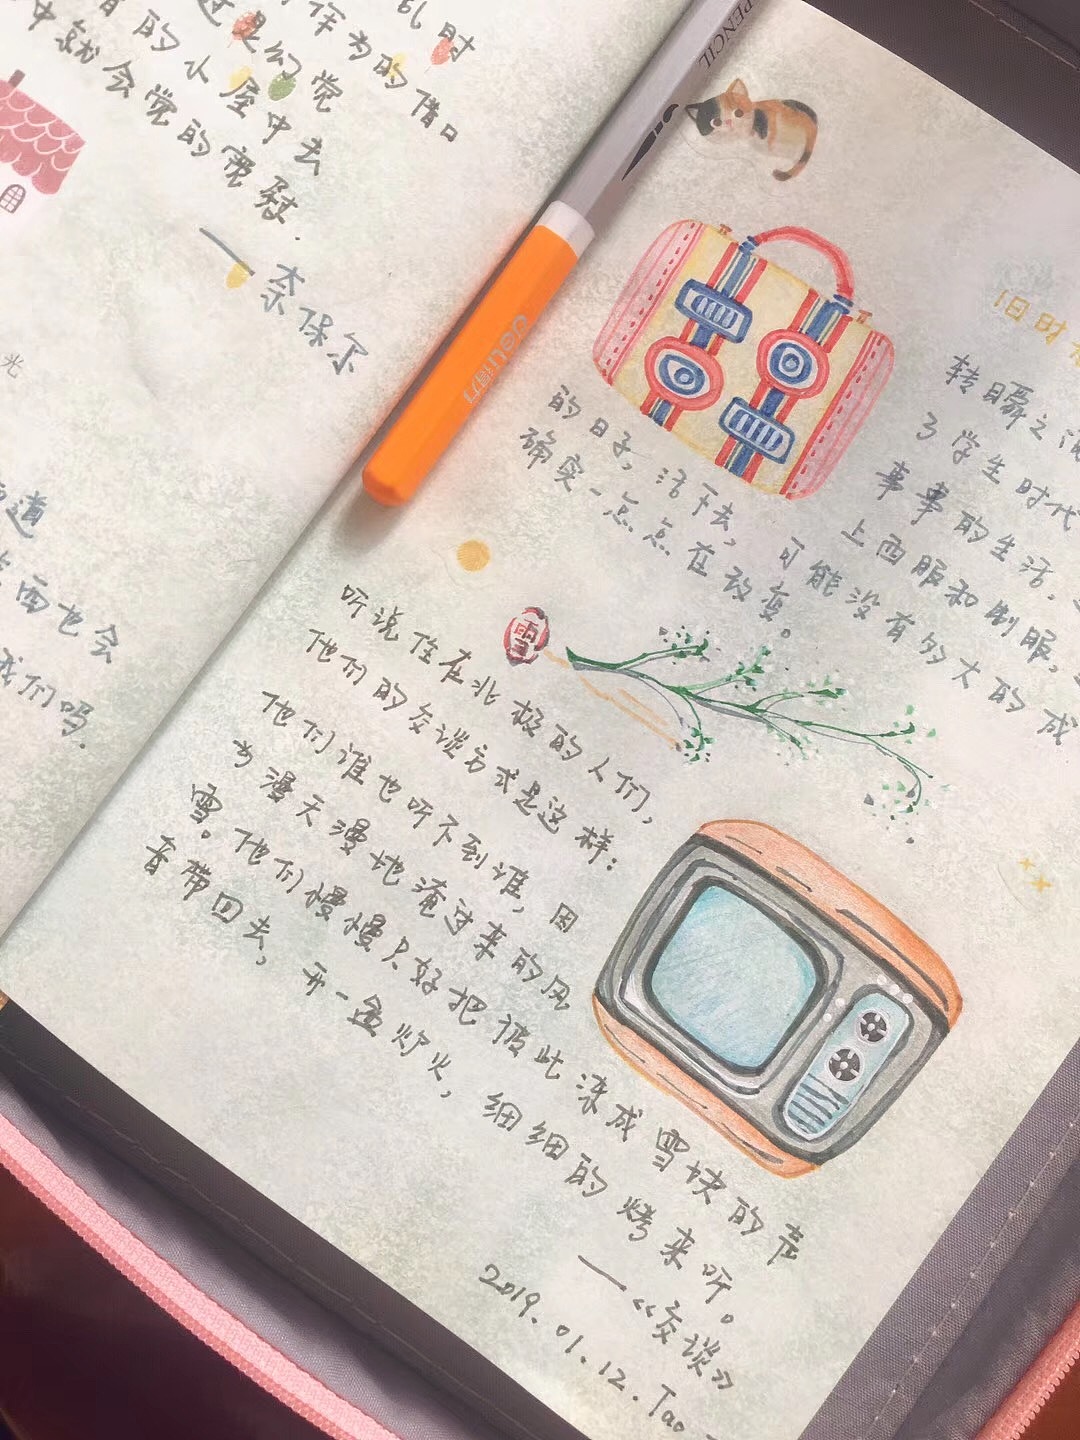 时
作为的借口
是幻觉
的小屋中去
中就会觉的宽慰.
——奈保尔
光
道
西也会
我们吗.
PENCIL
deli得力
旧时
转瞬之
了学生时代
事事的生活.
上西服和制服,
的日子,活下去,可能没有多大的成
确实一点点在改变。
雪
听说住在北极的人们,
他们的交谈方式是这样:
他们谁也听不到谁,因
为漫天漫地淹过来的风
雪。他们慢慢只好把彼此冻成雪块的声
音带回去,开一盆炉火,细细的烤来听。
——《交谈》
2019.01.12.Tao